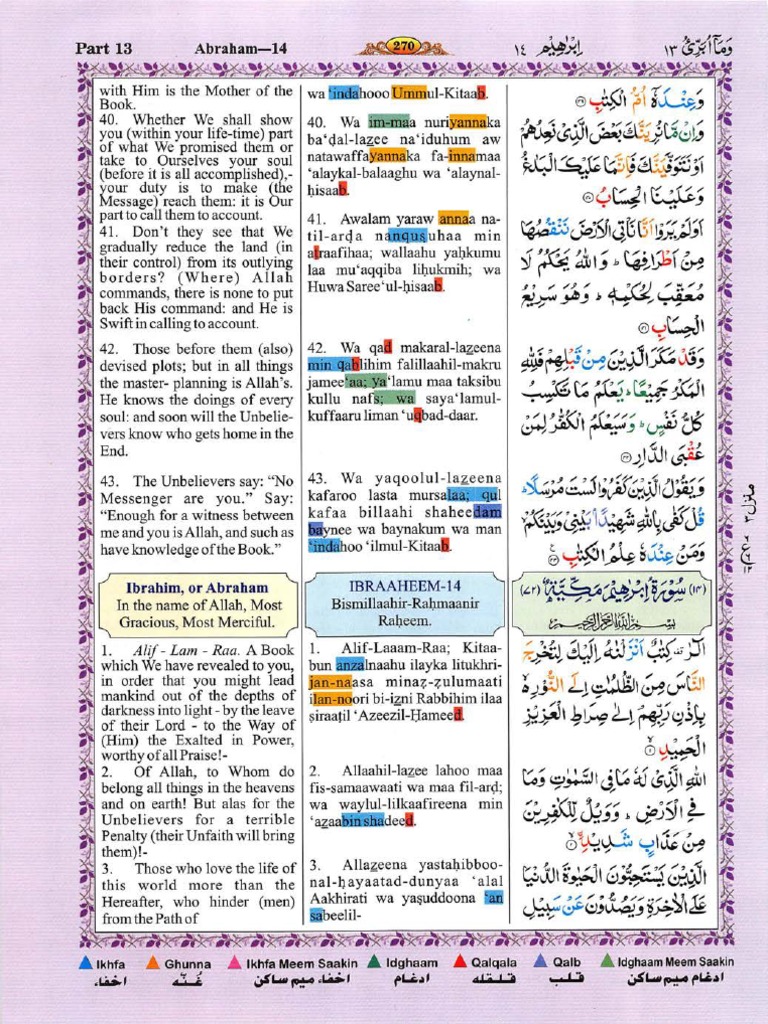 Part 13
Abraham—14
270
اِبْرٰهِيْم ١٤
وَمَآ اُبَرِّئُ ١٣
with Him is the Mother of the
Book.
40. Whether We shall show
you (within your life-time) part
of what We promised them or
take to Ourselves your soul
(before it is all accomplished),-
your duty is to make (the
Message) reach them: it is Our
part to call them to account.
41. Don’t they see that We
gradually reduce the land (in
their control) from its outlying
borders? (Where) Allah
commands, there is none to put
back His command: and He is
Swift in calling to account.
42. Those before them (also)
devised plots; but in all things
the master- planning is Allah’s.
He knows the doings of every
soul: and soon will the Unbelie-
vers know who gets home in the
End.
43. The Unbelievers say: “No
Messenger are you.” Say:
“Enough for a witness between
me and you is Allah, and such as
have knowledge of the Book.”
Ibrahim, or Abraham
In the name of Allah, Most
Gracious, Most Merciful.
1. Alif - Lam - Raa. A Book
which We have revealed to you,
in order that you might lead
mankind out of the depths of
darkness into light - by the leave
of their Lord - to the Way of
(Him) the Exalted in Power,
worthy of all Praise!-
2. Of Allah, to Whom do
belong all things in the heavens
and on earth! But alas for the
Unbelievers for a terrible
Penalty (their Unfaith will bring
them)!-
3. Those who love the life of
this world more than the
Hereafter, who hinder (men)
from the Path of
wa ‘indahooo Ummul-Kitaab.
40. Wa im-maa nuriyannaka
ba‘ḍal-lazee na‘iduhum aw
natawaffayannaka fa-innamaa
‘alaykal-balaaghu wa ‘alaynal-
ḥisaab.
41. Awalam yaraw annaa na-
til-arḍa nanquṣuhaa min
aṭraafihaa; wallaahu yaḥkumu
laa mu‘aqqiba liḥukmih; wa
Huwa Saree‘ul-ḥisaab.
42. Wa qad makaral-lazeena
min qablihim falillaahil-makru
jamee‘aa; ya‘lamu maa taksibu
kullu nafs; wa saya‘lamul-
kuffaaru liman ‘uqbad-daar.
43. Wa yaqoolul-lazeena
kafaroo lasta mursalaa; qul
kafaa billaahi shaheedam
baynee wa baynakum wa man
‘indahoo ‘ilmul-Kitaab.
IBRAAHEEM-14
Bismillaahir-Raḥmaanir
Raḥeem.
1. Alif-Laaam-Raa; Kitaa-
bun anzalnaahu ilayka litukhri-
jan-naasa minaẓ-ẓulumaati
ilan-noori bi-izni Rabbihim ilaa
ṣiraaṭil ‘Azeezil-Ḥameed.
2. Allaahil-lazee lahoo maa
fis-samaawaati wa maa fil-arḍ;
wa waylul-lilkaafireena min
‘azaabin shadeed.
3. Allazeena yastaḥibboo-
nal-ḥayaatad-dunyaa ‘alal
Aakhirati wa yaṣuddoona ‘an
sabeelil-
وَعِنْدَهٗٓ اُمُّ الْكِتٰبِ ۝٣٩
وَاِنْ مَّا نُرِيَنَّكَ بَعْضَ الَّذِيْ نَعِدُهُمْ
اَوْ نَتَوَفَّيَنَّكَ فَاِنَّمَا عَلَيْكَ الْبَلٰغُ
وَعَلَيْنَا الْحِسَابُ ۝٤٠
اَوَلَمْ يَرَوْا اَنَّا نَاْتِي الْاَرْضَ نَنْقُصُهَا
مِنْ اَطْرَافِهَا ؕ وَاللّٰهُ يَحْكُمُ لَا
مُعَقِّبَ لِحُكْمِهٖ ؕ وَهُوَ سَرِيْعُ
الْحِسَابِ ۝٤١
وَقَدْ مَكَرَ الَّذِيْنَ مِنْ قَبْلِهِمْ فَلِلّٰهِ
الْمَكْرُ جَمِيْعًا ؕ يَعْلَمُ مَا تَكْسِبُ
كُلُّ نَفْسٍ ؕ وَسَيَعْلَمُ الْكُفّٰرُ لِمَنْ
عُقْبَى الدَّارِ ۝٤٢
وَيَقُوْلُ الَّذِيْنَ كَفَرُوْا لَسْتَ مُرْسَلًا ؕ
قُلْ كَفٰى بِاللّٰهِ شَهِيْدًۢا بَيْنِيْ وَبَيْنَكُمْ ۙ
وَمَنْ عِنْدَهٗ عِلْمُ الْكِتٰبِ ۝٤٣
(١٤) سُوْرَةُ اِبْرٰهِيْمَ مَكِّيَّةٌ (٧٢)
بِسْمِ اللّٰهِ الرَّحْمٰنِ الرَّحِيْمِ
الٓرٰ ۫ كِتٰبٌ اَنْزَلْنٰهُ اِلَيْكَ لِتُخْرِجَ
النَّاسَ مِنَ الظُّلُمٰتِ اِلَى النُّوْرِ ۙ
بِاِذْنِ رَبِّهِمْ اِلٰى صِرَاطِ الْعَزِيْزِ
الْحَمِيْدِ ۝١
اللّٰهِ الَّذِيْ لَهٗ مَا فِي السَّمٰوٰتِ وَمَا
فِي الْاَرْضِ ؕ وَوَيْلٌ لِّلْكٰفِرِيْنَ
مِنْ عَذَابٍ شَدِيْدٍ ۝٢
الَّذِيْنَ يَسْتَحِبُّوْنَ الْحَيٰوةَ الدُّنْيَا
عَلَى الْاٰخِرَةِ وَيَصُدُّوْنَ عَنْ سَبِيْلِ
منزل ٣
Ikhfa
Ghunna
Ikhfa Meem Saakin
Idghaam
Qalqala
Qalb
Idghaam Meem Saakin
اخفاء
غُنّه
اخفاء میم ساکن
ادغام
قلقله
قلب
ادغام میم ساکن